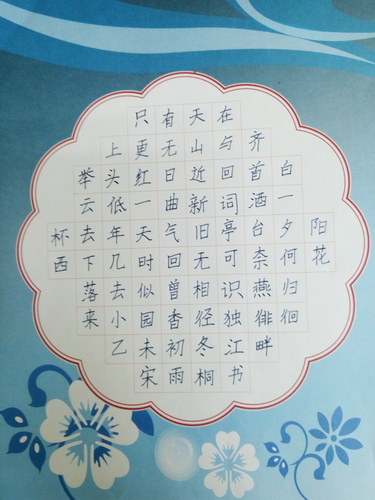 只有天在
上更无山与齐
举头红日近回首白
云低一曲新词酒一
杯去年天气旧亭台夕阳
西下几时回无可奈何花
落去似曾相识燕归
来小园香径独徘徊
乙未初冬江畔
宋雨桐书